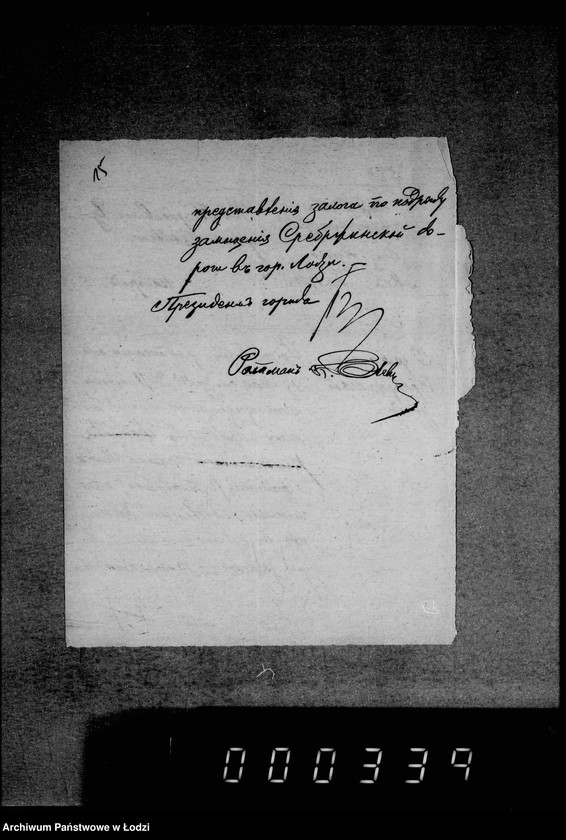 15
представленія залога по подряду
замощенія Сребржинской до-
роги въ гор. Лодзи.
Президентъ города
Ратманъ
000339
Archiwum Państwowe w Łodzi